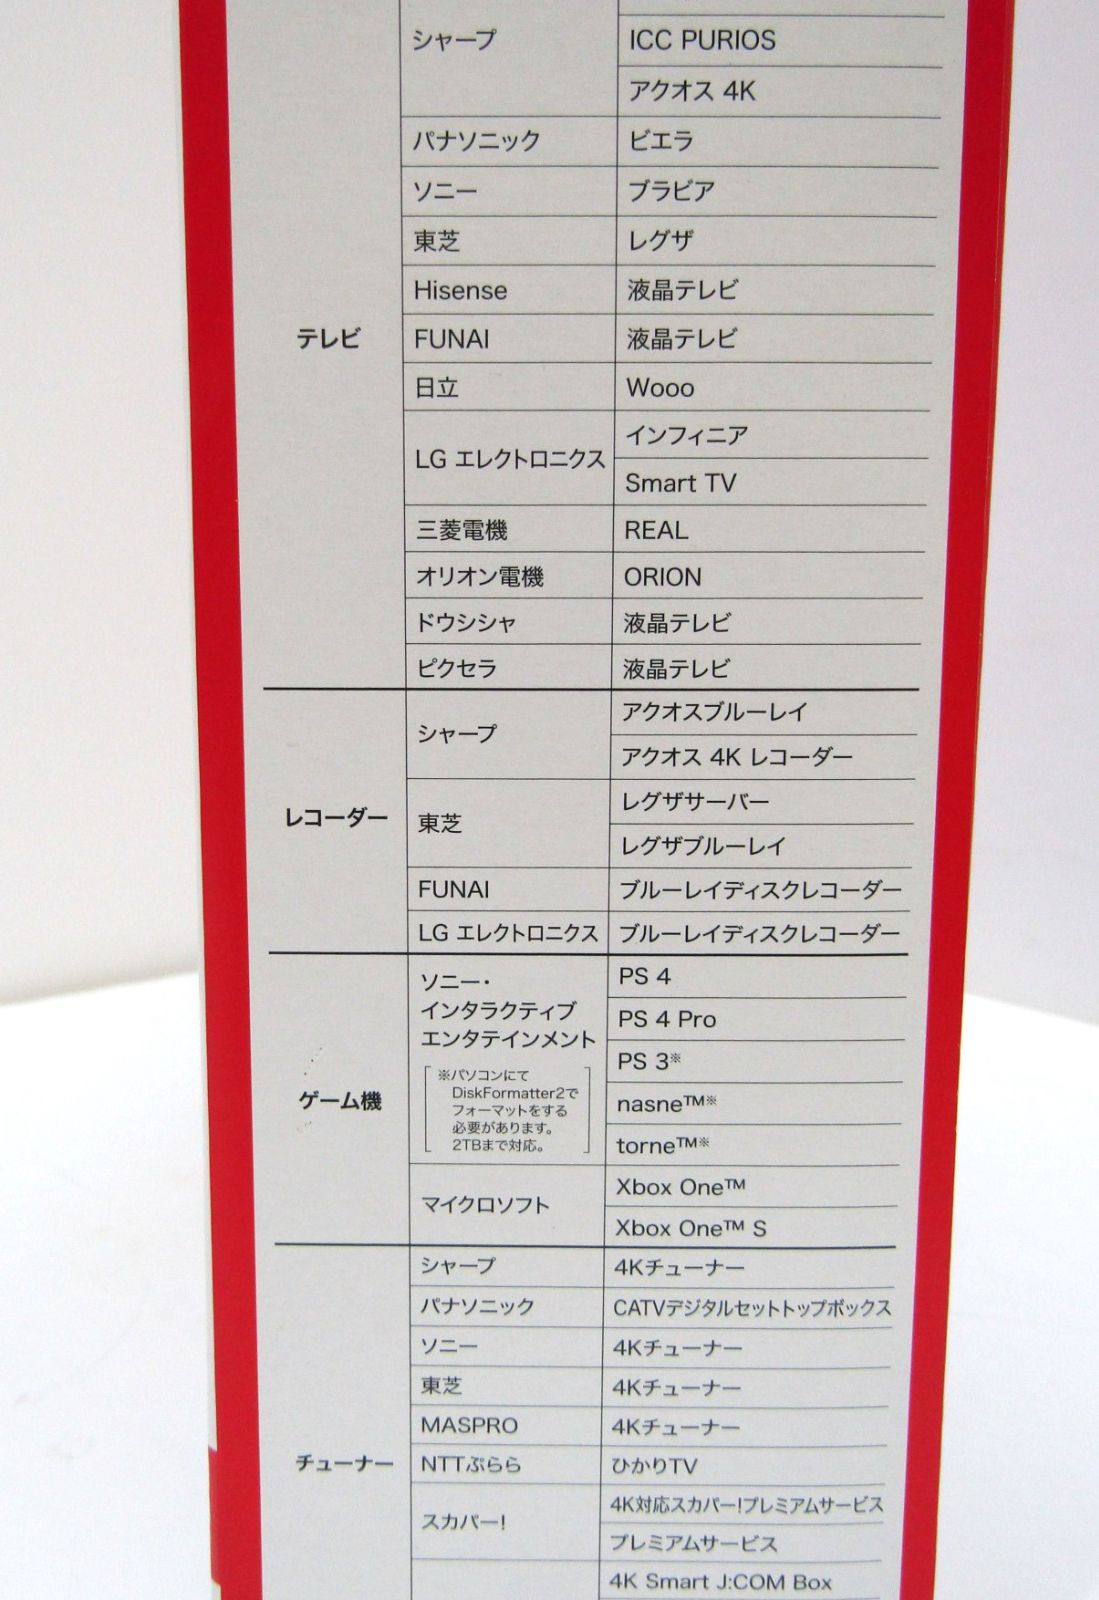 シャープ
ICC PURIOS
アクオス 4K
パナソニック ビエラ
ソニー ブラビア
東芝 レグザ
Hisense 液晶テレビ
テレビ FUNAI 液晶テレビ
日立 Wooo
LG エレクトロニクス
インフィニア
Smart TV
三菱電機 REAL
オリオン電機 ORION
ドウシシャ 液晶テレビ
ピクセラ 液晶テレビ
レコーダー
シャープ
アクオスブルーレイ
アクオス 4K レコーダー
東芝
レグザサーバー
レグザブルーレイ
FUNAI ブルーレイディスクレコーダー
LG エレクトロニクス ブルーレイディスクレコーダー
ゲーム機
ソニー・
インタラクティブ
エンタテインメント
※パソコンにて
DiskFormatter2で
フォーマットをする
必要があります。
2TBまで対応。
PS 4
PS 4 Pro
PS 3※
nasne™※
torne™※
マイクロソフト
Xbox One™
Xbox One™ S
チューナー
シャープ 4Kチューナー
パナソニック CATVデジタルセットトップボックス
ソニー 4Kチューナー
東芝 4Kチューナー
MASPRO 4Kチューナー
NTTぷらら ひかりTV
スカパー!
4K対応スカパー!プレミアムサービス
プレミアムサービス
4K Smart J:COM Box